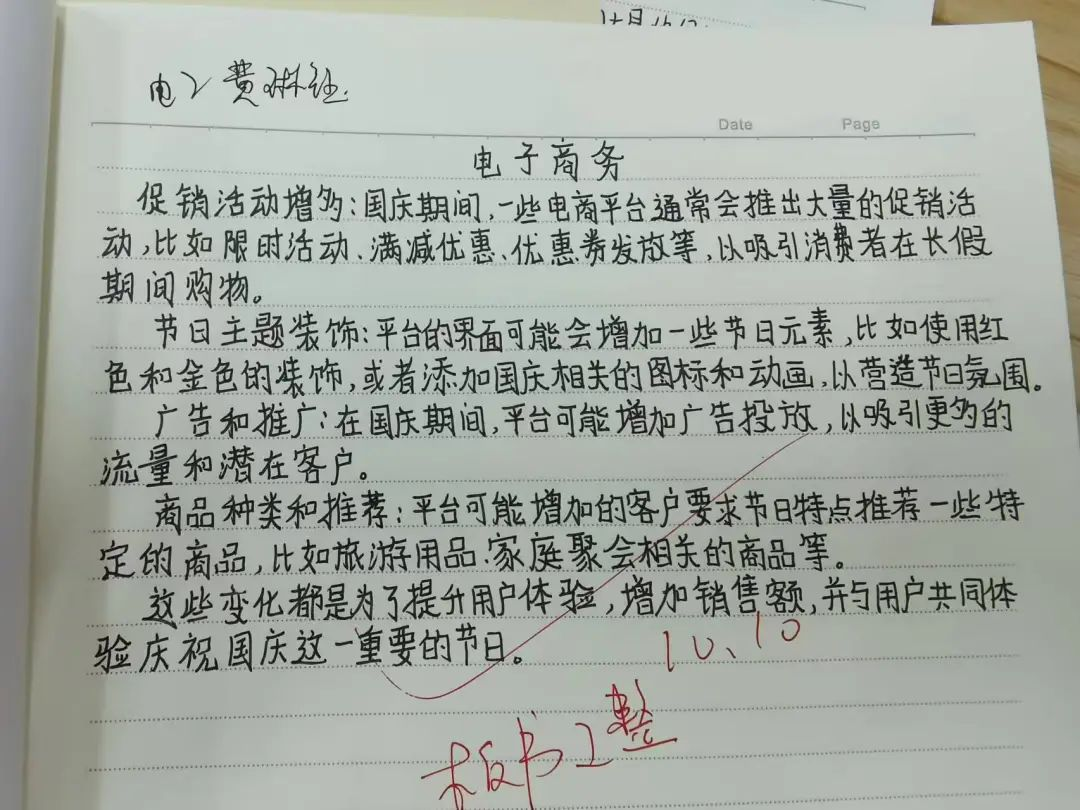 电2 费琳钰
Date Page
电子商务
促销活动增多:国庆期间,一些电商平台通常会推出大量的促销活
动,比如限时活动、满减优惠、优惠券发放等,以吸引消费者在长假
期间购物。
节日主题装饰:平台的界面可能会增加一些节日元素,比如使用红
色和金色的装饰,或者添加国庆相关的图标和动画,以营造节日氛围。
广告和推广:在国庆期间,平台可能增加广告投放,以吸引更多的
流量和潜在客户。
商品种类和推荐:平台可能增加的客户要求节日特点推荐一些特
定的商品,比如旅游用品、家庭聚会相关的商品等。
这些变化都是为了提升用户体验,增加销售额,并与用户共同体
验庆祝国庆这一重要的节日。
10、10
板书工整